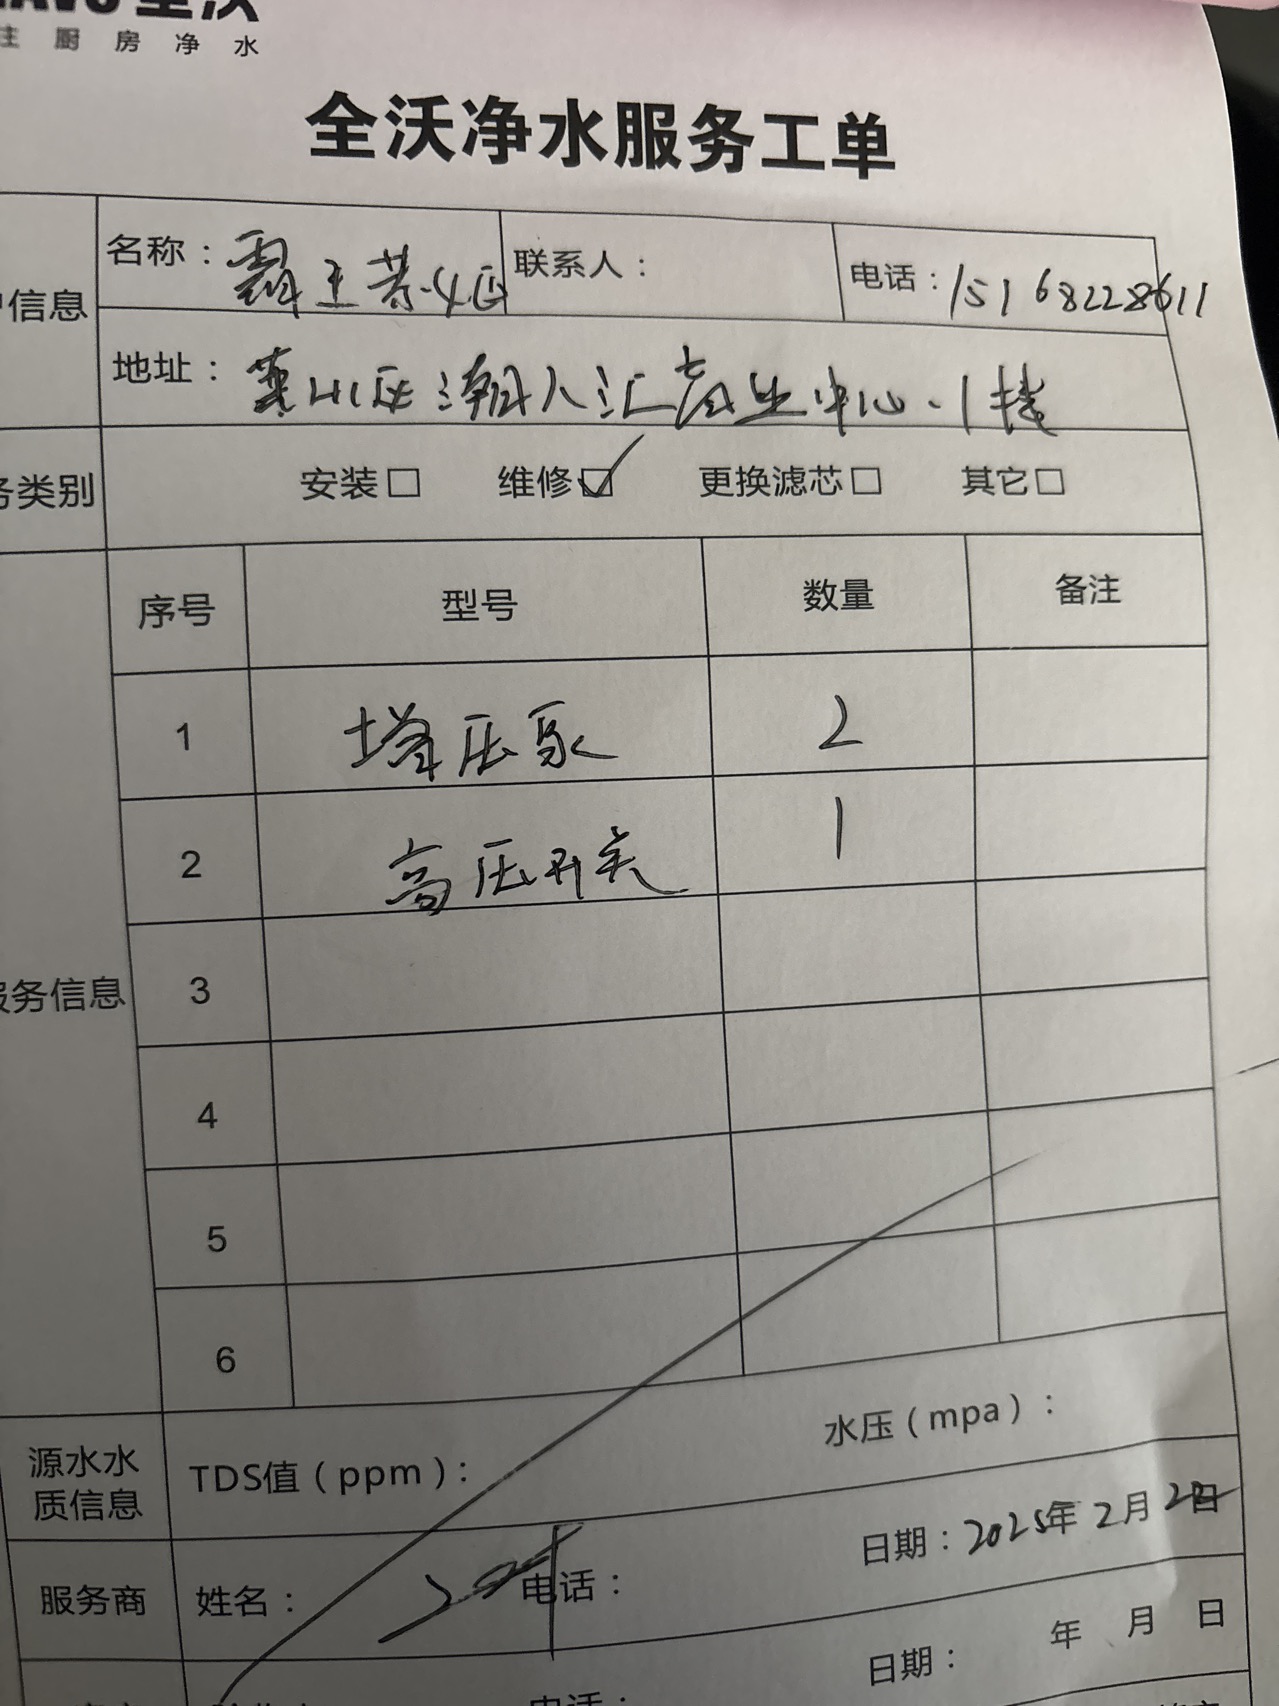 全沃
注厨房净水
全沃净水服务工单
信息
名称：霸王茶姬 联系人： 电话：15168228611
地址：萧山区潮人汇商业中心、1楼
务类别 安装□ 维修☑ 更换滤芯□ 其它□
服务信息
序号 型号 数量 备注
1 增压泵 2
2 高压开关 1
3
4
5
6
源水水质信息 TDS值（ppm）： 水压（mpa）：
服务商 姓名： 电话： 日期：2025年2月2日
电话： 日期： 年 月 日